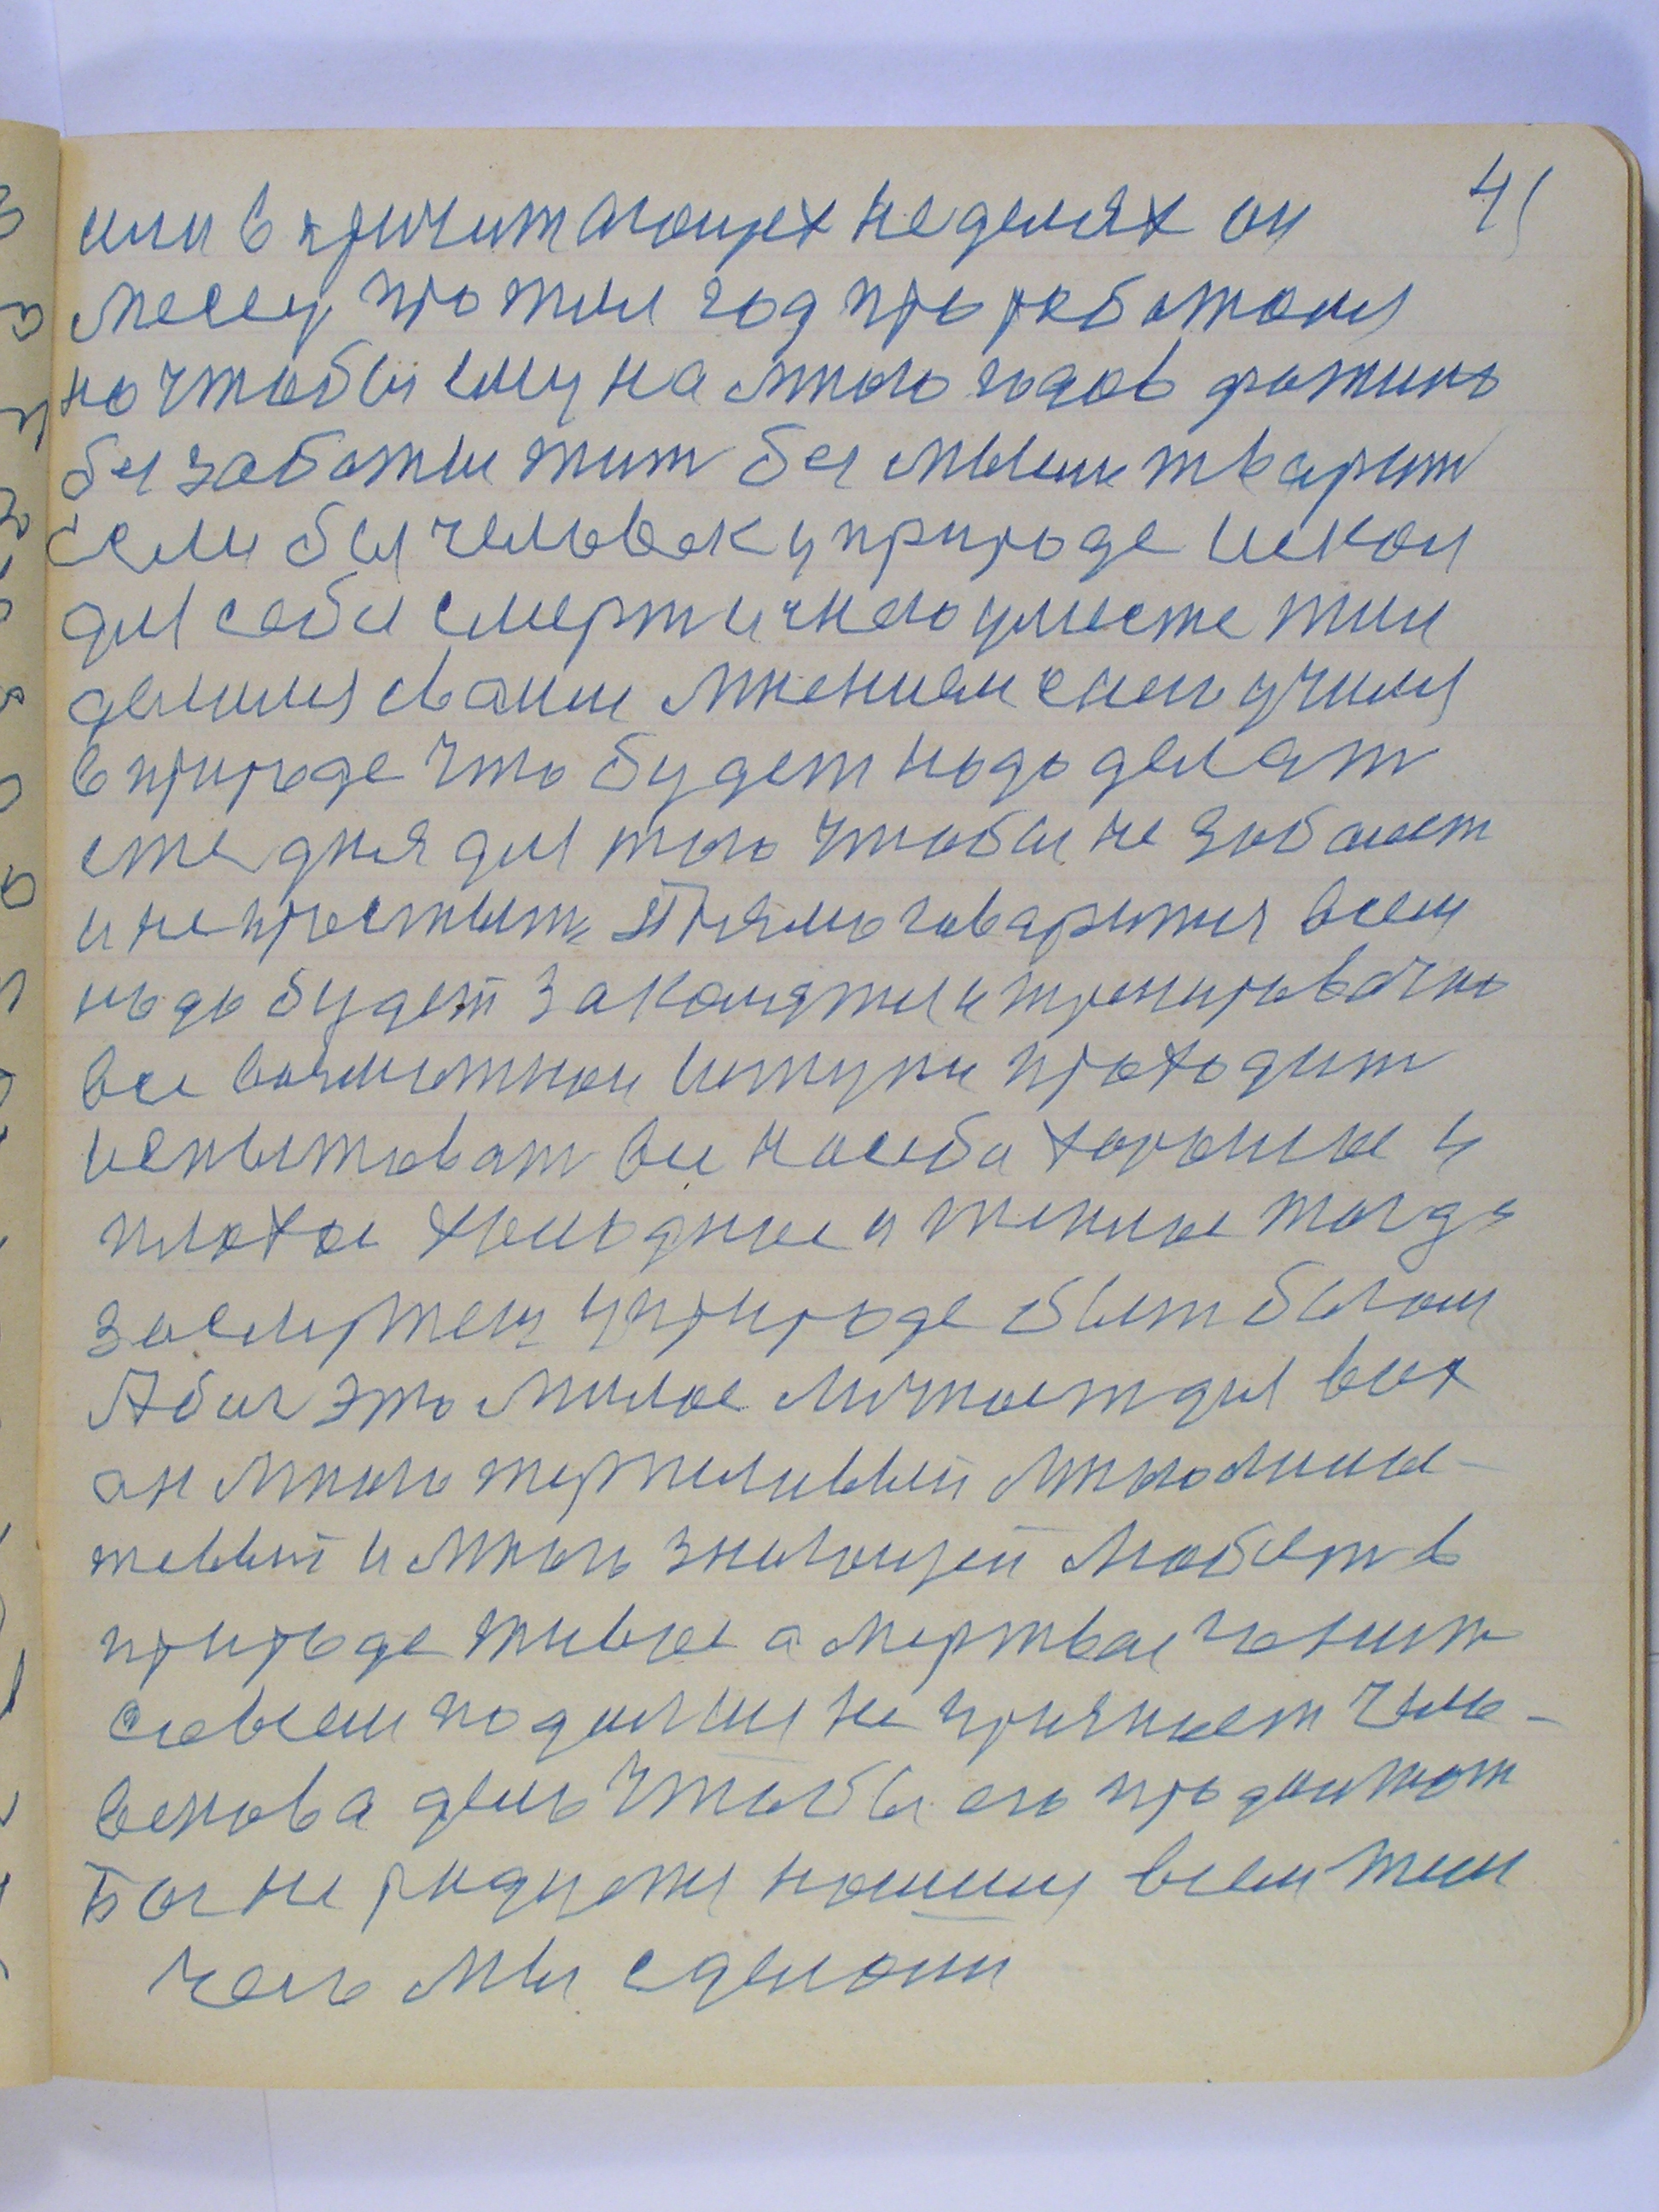 41
или в причитающих неделях он
месец прожил год проработоля
но чтобы ему на много годов хватило
без заботы жит без мысли творит
если бы человек у природе искал
для себя смерт и с нею уместе жил
делился своим мнением с нею учился
в природе что будет надо делат
сегодня для того чтобы не заболет
и не простыть Прямо говорится всем
надо будет закалятся и тренировачно
все вогмитном проходит
испытоват все на себе хорошое и
плохое холодное и теплое тогда
засмертем у природе быт былом
А бог это милое личност для всех
он много терпеливый многомило
тевый и много знающей любит в
природе живое а мертвое гонит
совсем подальше не приянает чело-
векова дело чтобы его продолжат
Бог не радуется нашим всем тем
чего мы сделали